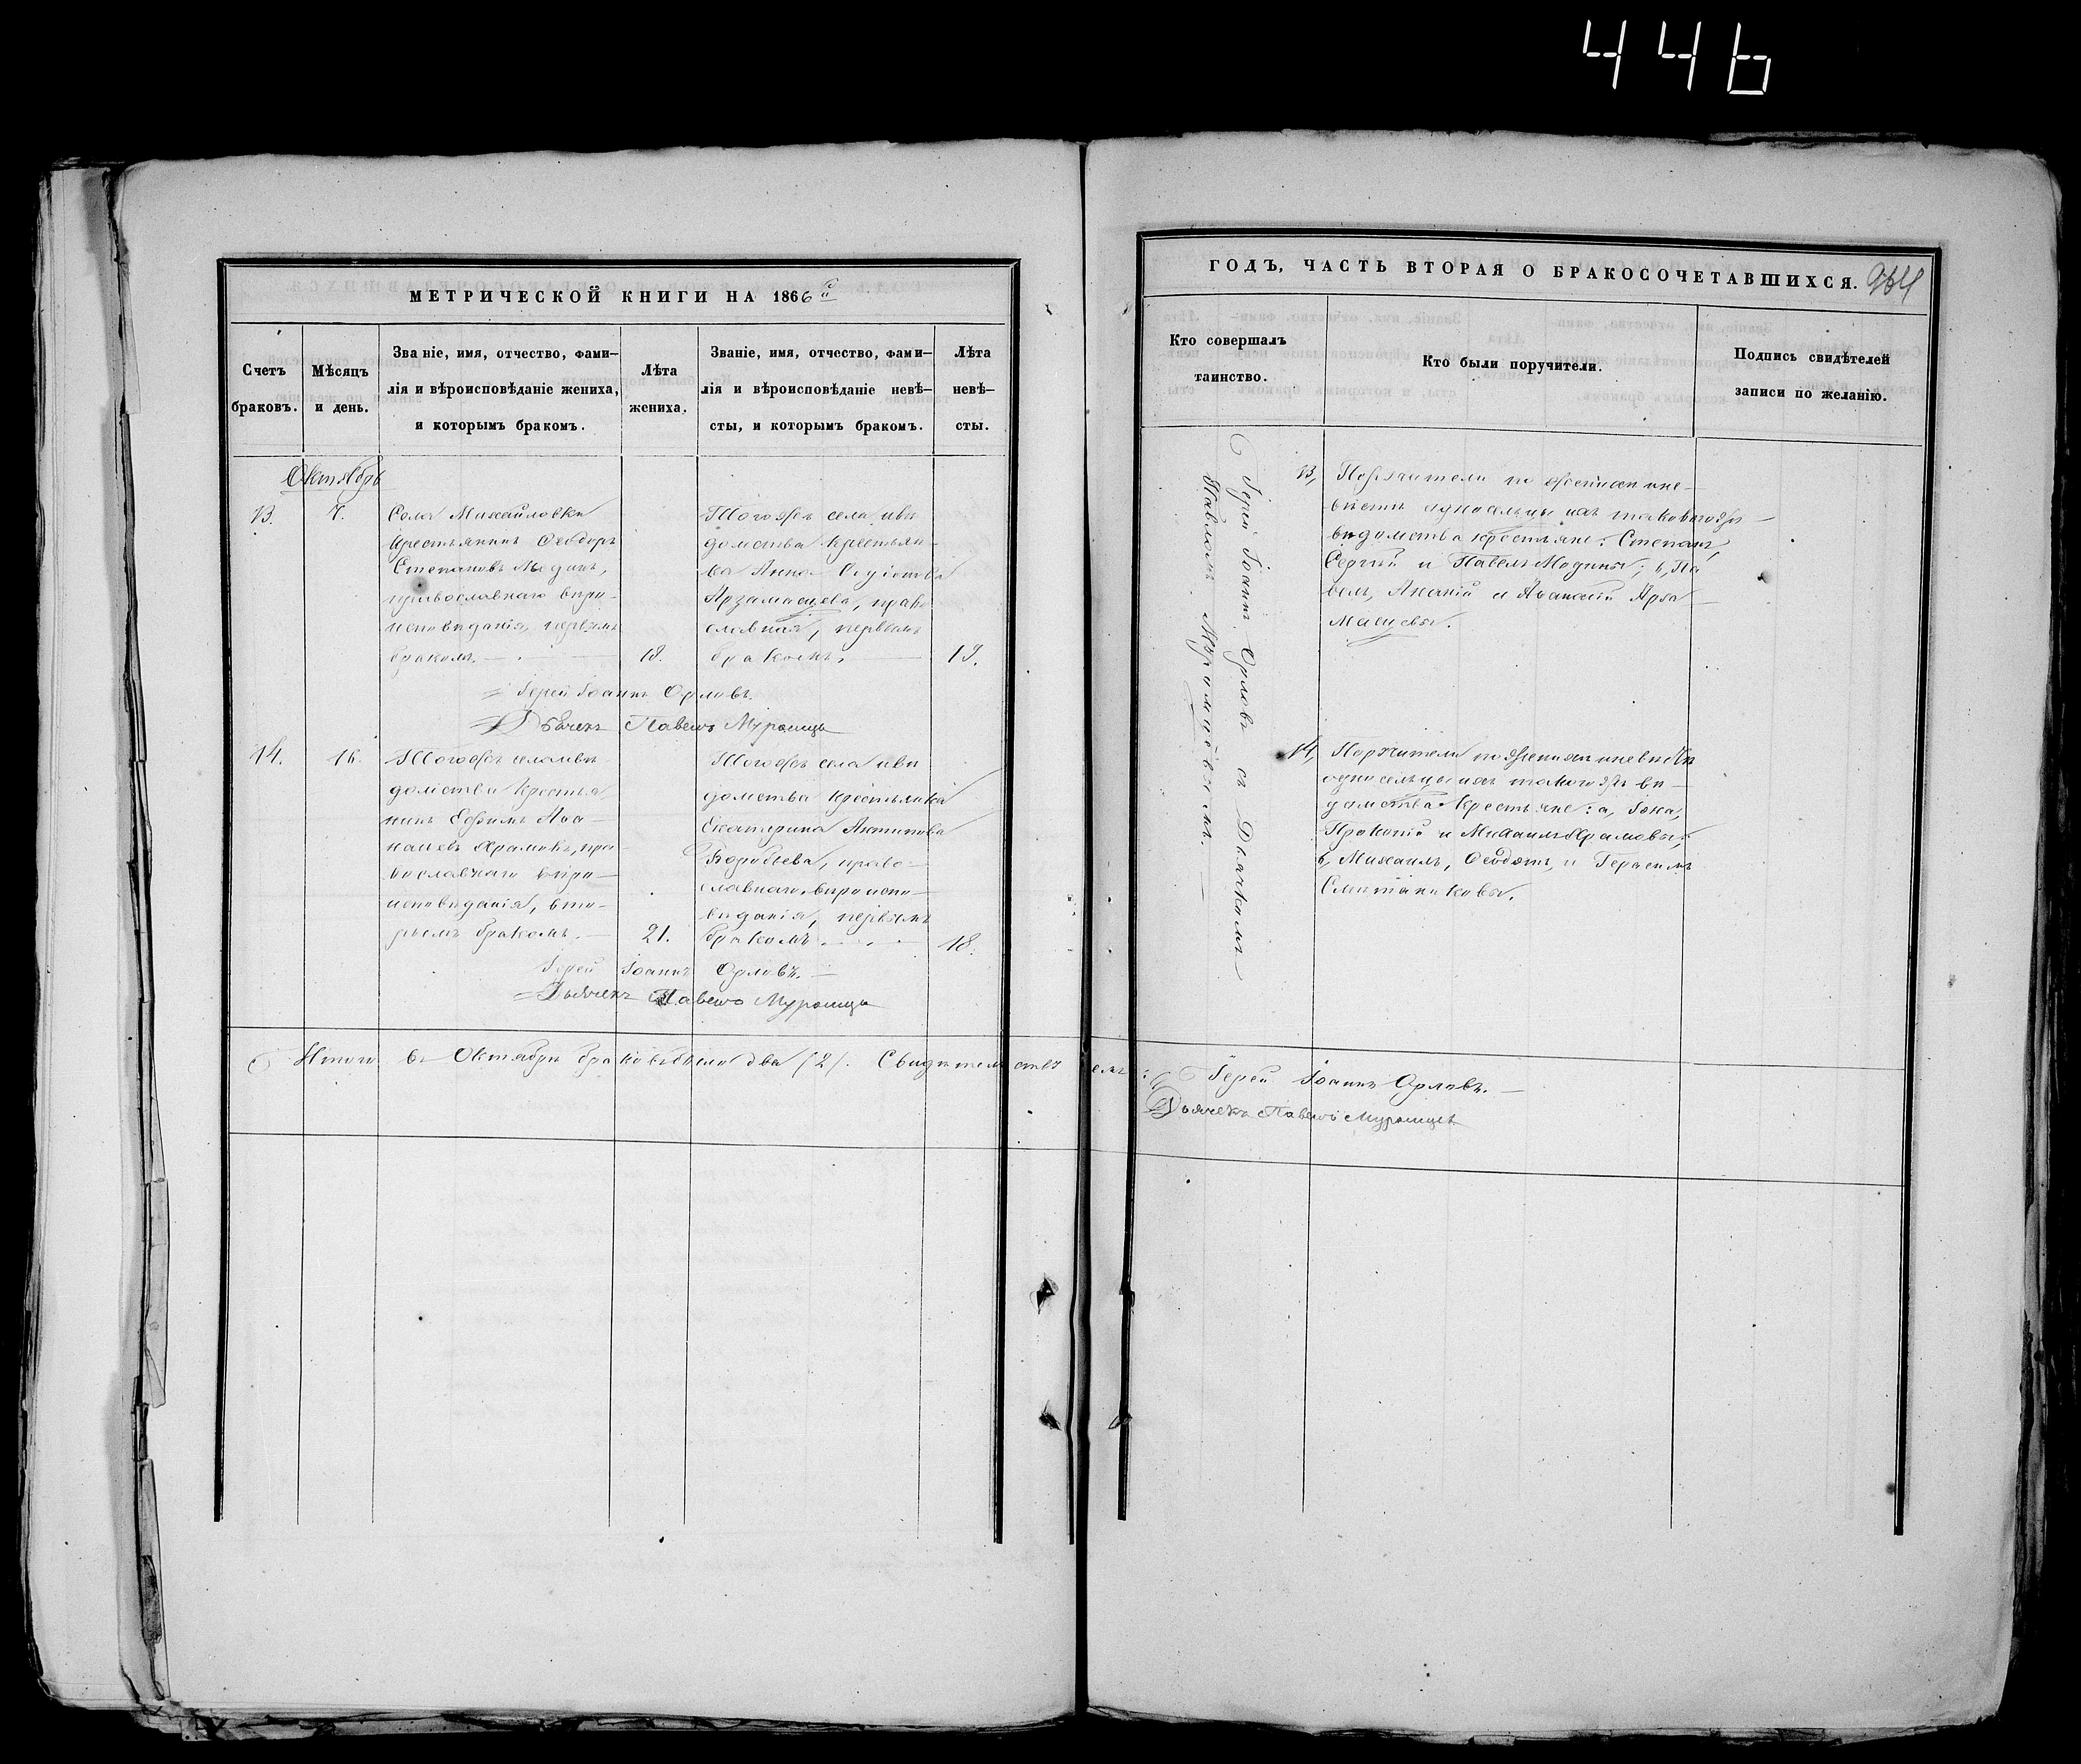 446
МЕТРИЧЕСКОЙ КНИГИ НА 1866 й
Счетъ браковъ.
Мѣсяцъ и день.
Званіе, имя, отчество, фами-
лія и вѣроисповѣданіе жениха,
и которымъ бракомъ.
Лѣта
жениха.
Званіе, имя, отчество, фами-
лія и вѣроисповѣданіе невѣ-
сты, и которымъ бракомъ.
Лѣта
невѣ-
сты.
Октябрь
13.
7.
Села Михайловки
крестьянинъ Ѳеодоръ
Степановъ
православнаго вѣро-
исповѣданія, первымъ
бракомъ.
18.
Тогоже села и вѣ
домства крестьян-
ка Анна
Арзамасцева, право
славная, первымъ
бракомъ.
19.
Іерей Іоаннъ Орловъ.
Дьячекъ Павелъ Муромцъ
14.
16.
Тогоже села и вѣ
домства крестья
нинъ Ефимъ Аѳа-
насьевъ Храмовъ, пра
вославнаго вѣро-
исповѣданія, вто-
рымъ бракомъ.
21.
Тогоже села и вѣ
домства крестьянка
Екатерина Антипова
Воробьева, право-
славнаго вѣроиспо-
вѣданія, первымъ
бракомъ.
18.
Іерей Іоаннъ Орловъ.
Дьячекъ Павелъ Муромцъ
Итого въ Октябрѣ браковъ было два (2). Свидѣтельствуемъ:
ГОДЪ, ЧАСТЬ ВТОРАЯ О БРАКОСОЧЕТАВШИХСЯ.
964
Кто совершалъ
таинство.
Кто были поручители.
Подпись свидѣтелей
записи по желанію.
Іерей Іоаннъ Орловъ съ Дьячкомъ
Павломъ Муромцовымъ.
13,
Поручители по женихи и не-
вѣстѣ односельцы ихъ таковогоже
вѣдомства крестьяне: Степанъ,
Сергѣй и Павелъ Модины; б, Па
велъ, Ананій и Аѳанасій Арза
масцевы.
14,
Поручители по женихи и невѣстѣ
односельцы ихъ такогожъ вѣ-
домства крестьяне: а, Іона,
Прокопій и Михаилъ Храмовы;
б, Михаилъ, Ѳеодотъ и Герасимъ
Сметаниковы.
Іерей Іоаннъ Орловъ.
Дьячекъ Павелъ Муромцъ